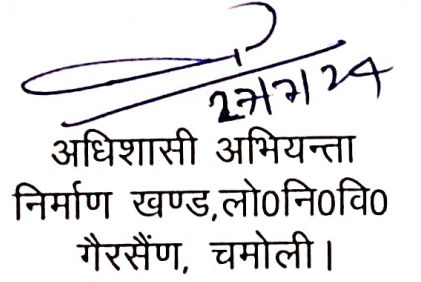 27/7/24
अधिशासी अभियन्ता
निर्माण खण्ड,लो0नि0वि0
गैरसैंण, चमोली।